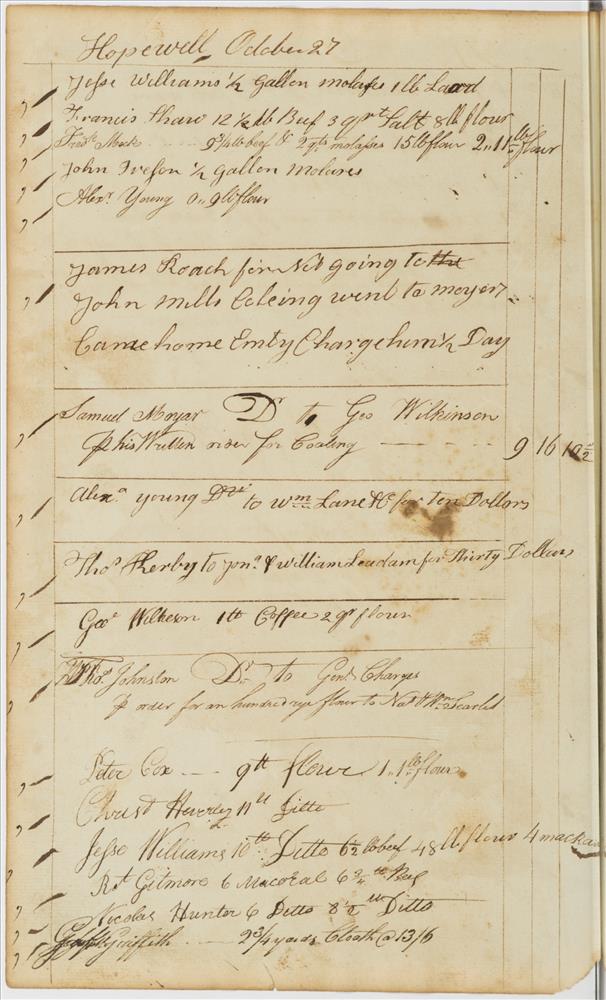 Hopewell October 27
Jesse Williams ½ Gallon molases 1 lb Laard
Francis Shaw 12½ lb Beef 3 qrt Salt 8 lb flour
Fredk Meek 9¾ lb beef & 2 qts molasses 15 lb flour 2,, 11 lb flour
John Iveson ½ gallon molases
Alexr Young 0,, 9 lb flour
James Roach for Not going to the
John mills Coleing went to moyers
Came home Emty Charge him ½ Day
Samuel Moyar Dr to Geo Wilkinson
℔ his Written order for Coaling 9 16 10½
Alexn young Dr to Wm Lane & Co for Ten Dollars
Thos Kerby to Jona & William Leadam for Thirty Dollars
Geor Wilkeson 1 tt Coffee 2 qr flour
Thos Johnston Dr to Genl Charges
℔ order for an hundred rye flour to Nat & Wm Scarlet
Peter Cox 9 tt flour 1,, 1 lb flour
Christ Heverley 11 lb Ditto
Jesse Williams 10 tt Ditto 6½ lb beef 48 lb flour 4 mackar
Rt Gilmore 6 Macoral 6¾ tt Beef
Nicolas Hunter 6 Ditto 8½ tt Ditto
Griffith 2 3/4 yards Cloath @ 13/6